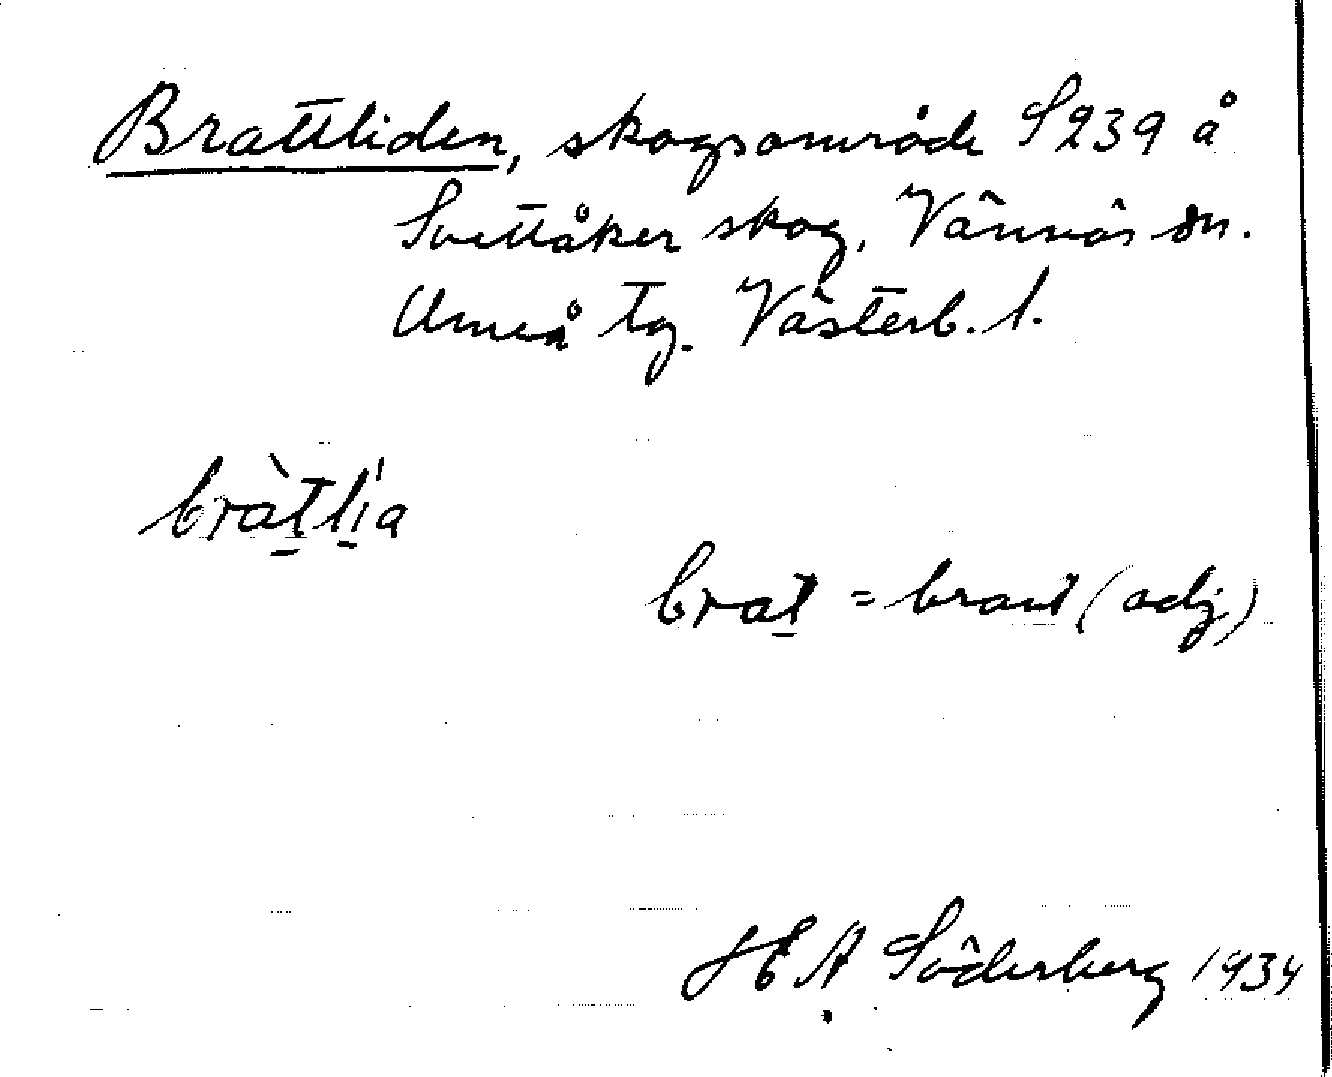 Brattliden, skogsområde S239 å
Svettåker skog, Vännäs sn.
Umeå tg. Västerb. l.
bràtlía
brat = brant (adj)
H E A Söderberg 1934